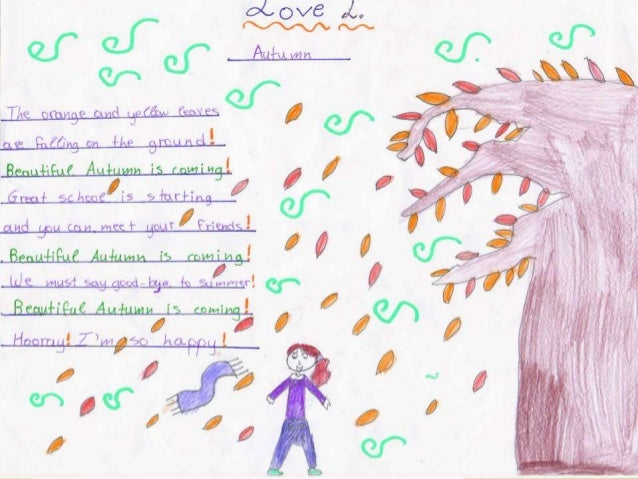 Love L.
Autumn
The orange and yellow leaves
are falling on the ground!
Beautiful Autumn is coming!
Great school is starting
and you can meet your friends!
Beautiful Autumn is coming!
We must say good-bye to summer!
Beautiful Autumn is coming!
Hooray! I'm so happy!